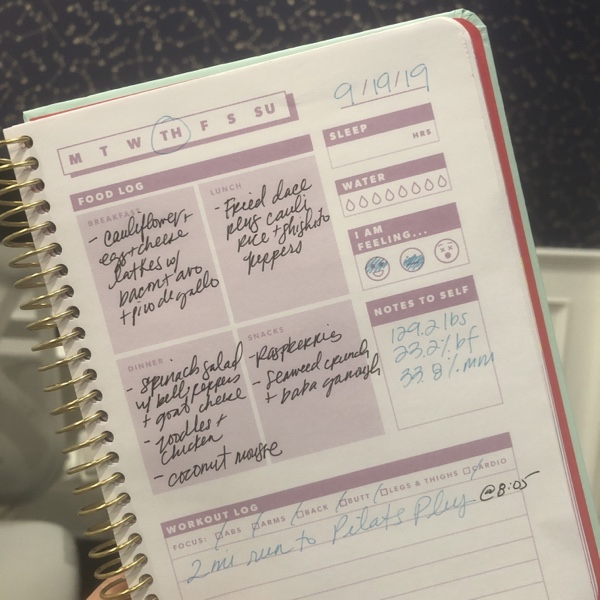 9/19/19
M T W TH F S SU
SLEEP
HRS
FOOD LOG
BREAKFAST
- cauliflower +
egg + cheese
latkes w/
bacon + avo
+ pico de gallo
LUNCH
- Fried dace
plus cauli
rice + shishito
peppers
WATER
I AM
FEELING...
DINNER
- spinach salad
w/ bell peppers
+ goat cheese
- zoodles +
chicken
- coconut mousse
SNACKS
- Raspberries
- Seaweed crunch
+ baba ganoush
NOTES TO SELF
129.2 lbs
23.2% bf
33.8% mm
WORKOUT LOG
FOCUS: ABS ARMS BACK BUTT LEGS & THIGHS CARDIO
2 mi run to Pilates Plus @8:05